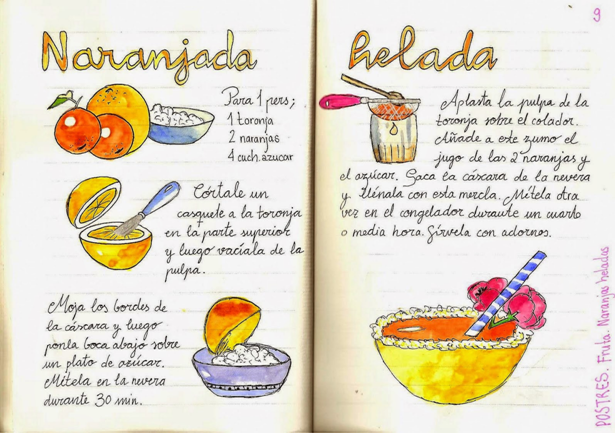 Naranjada helada
Para 1 pers;
1 toronja
2 naranjas
4 cuch. azucar
Córtale un
casquete a la toronja
en la parte superior
y luego vacíala de la
pulpa.
Moja los bordes de
la cáscara y luego
ponla boca abajo sobre
un plato de azúcar.
Mételа en la nevera
durante 30 min.
9
Aplasta la pulpa de la
toronja sobre el colador.
Añade a este zumo el
jugo de las 2 naranjas y
el azúcar. Saca la cáscara de la nevera
y llénala con esta mezcla. Métela otra
vez en el congelador durante un cuarto
o media hora. Sírvela con adornos.
POSTRES. Fruta. Naranjas heladas